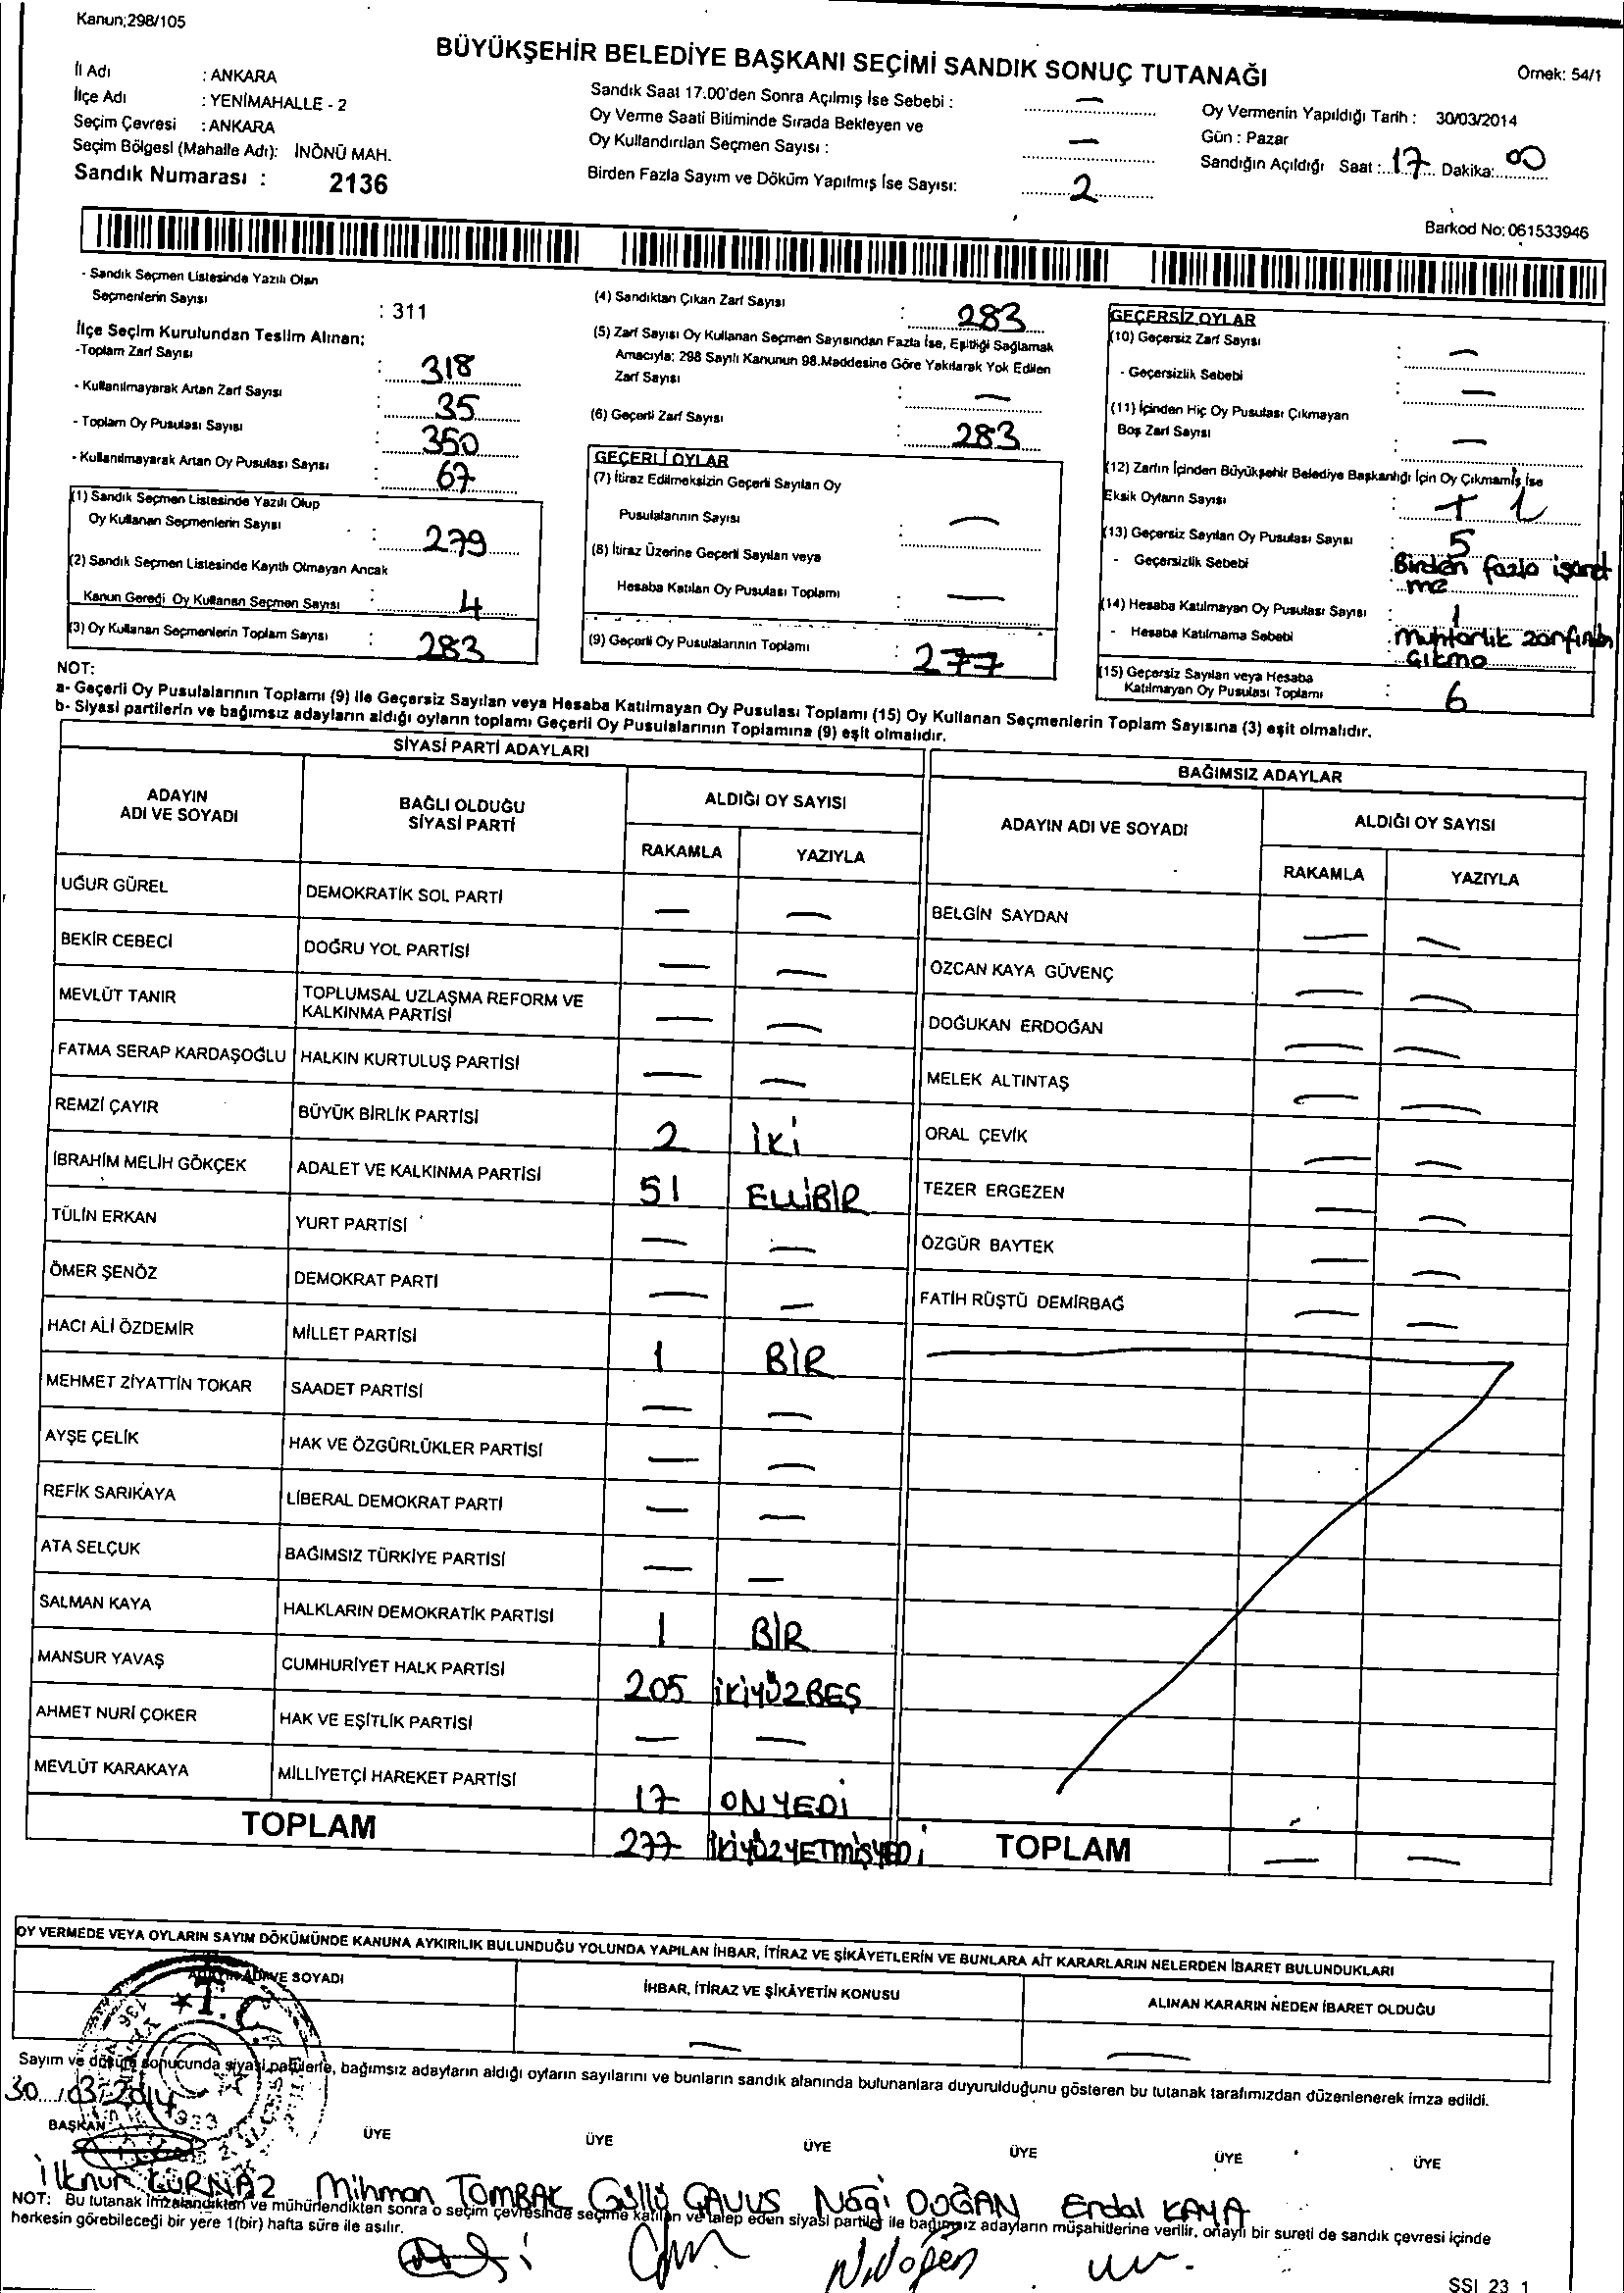 Kanun;298/105
BÜYÜKŞEHİR BELEDİYE BAŞKANI SEÇİMİ SANDIK SONUÇ TUTANAĞI
Örnek: 54/1
İl Adı : ANKARA
İlçe Adı : YENİMAHALLE - 2
Seçim Çevresi : ANKARA
Seçim Bölgesi (Mahalle Adı): İNÖNÜ MAH.
Sandık Numarası : 2136
Sandık Saat 17.00'den Sonra Açılmış İse Sebebi : —
Oy Verme Saati Bitiminde Sırada Bekleyen ve
Oy Kullandırılan Seçmen Sayısı : —
Birden Fazla Sayım ve Döküm Yapılmış İse Sayısı: 2
Oy Vermenin Yapıldığı Tarih : 30/03/2014
Gün : Pazar
Sandığın Açıldığı Saat : 17 Dakika: 00
Barkod No: 061533946
- Sandık Seçmen Listesinde Yazılı Olan
Seçmenlerin Sayısı : 311
İlçe Seçim Kurulundan Teslim Alınan:
-Toplam Zarf Sayısı : 318
- Kullanılmayarak Artan Zarf Sayısı : 35
- Toplam Oy Pusulası Sayısı : 350
- Kullanılmayarak Artan Oy Pusulası Sayısı : 67
(1) Sandık Seçmen Listesinde Yazılı Olup
Oy Kullanan Seçmenlerin Sayısı : 279
(2) Sandık Seçmen Listesinde Kayıtlı Olmayan Ancak
Kanun Gereği Oy Kullanan Seçmen Sayısı : 4
(3) Oy Kullanan Seçmenlerin Toplam Sayısı : 283
(4) Sandıktan Çıkan Zarf Sayısı : 283
(5) Zarf Sayısı Oy Kullanan Seçmen Sayısından Fazla İse, Eşitliği Sağlamak
Amacıyla; 298 Sayılı Kanunun 98.Maddesine Göre Yakılarak Yok Edilen
Zarf Sayısı : —
(6) Geçerli Zarf Sayısı : 283
GEÇERLİ OYLAR
(7) İtiraz Edilmeksizin Geçerli Sayılan Oy
Pusulalarının Sayısı : —
(8) İtiraz Üzerine Geçerli Sayılan veya
Hesaba Katılan Oy Pusulası Toplamı : —
(9) Geçerli Oy Pusulalarının Toplamı : 277
GEÇERSİZ OYLAR
(10) Geçersiz Zarf Sayısı : —
- Geçersizlik Sebebi : —
(11) İçinden Hiç Oy Pusulası Çıkmayan
Boş Zarf Sayısı : —
(12) Zarfın İçinden Büyükşehir Belediye Başkanlığı İçin Oy Çıkmamış İse
Eksik Oyların Sayısı :
(13) Geçersiz Sayılan Oy Pusulası Sayısı : 5
- Geçersizlik Sebebi : Birden fazla işaret
me
(14) Hesaba Katılmayan Oy Pusulası Sayısı : 1
- Hesaba Katılmama Sebebi : Muhtarlık zarfından
Çıkma
(15) Geçersiz Sayılan veya Hesaba
Katılmayan Oy Pusulası Toplamı : 6
NOT:
a- Geçerli Oy Pusulalarının Toplamı (9) ile Geçersiz Sayılan veya Hesaba Katılmayan Oy Pusulası Toplamı (15) Oy Kullanan Seçmenlerin Toplam Sayısına (3) eşit olmalıdır.
b- Siyasi partilerin ve bağımsız adayların aldığı oyların toplamı Geçerli Oy Pusulalarının Toplamına (9) eşit olmalıdır.
SİYASİ PARTİ ADAYLARI
ADAYIN ADI VE SOYADI BAĞLI OLDUĞU SİYASİ PARTİ ALDIĞI OY SAYISI
RAKAMLA YAZIYLA
UĞUR GÜREL DEMOKRATİK SOL PARTİ — —
BEKİR CEBECİ DOĞRU YOL PARTİSİ — —
MEVLÜT TANIR TOPLUMSAL UZLAŞMA REFORM VE KALKINMA PARTİSİ — —
FATMA SERAP KARDAŞOĞLU HALKIN KURTULUŞ PARTİSİ — —
REMZİ ÇAYIR BÜYÜK BİRLİK PARTİSİ 2 İKİ
İBRAHİM MELİH GÖKÇEK ADALET VE KALKINMA PARTİSİ 51 ELLİBİR
TÜLİN ERKAN YURT PARTİSİ — —
ÖMER ŞENÖZ DEMOKRAT PARTİ — —
HACI ALİ ÖZDEMİR MİLLET PARTİSİ 1 BİR
MEHMET ZİYATTİN TOKAR SAADET PARTİSİ — —
AYŞE ÇELİK HAK VE ÖZGÜRLÜKLER PARTİSİ — —
REFİK SARIKAYA LİBERAL DEMOKRAT PARTİ — —
ATA SELÇUK BAĞIMSIZ TÜRKİYE PARTİSİ — —
SALMAN KAYA HALKLARIN DEMOKRATİK PARTİSİ 1 BİR
MANSUR YAVAŞ CUMHURİYET HALK PARTİSİ 205 İKİYÜZBEŞ
AHMET NURİ ÇOKER HAK VE EŞİTLİK PARTİSİ — —
MEVLÜT KARAKAYA MİLLİYETÇİ HAREKET PARTİSİ 17 ONYEDİ
TOPLAM 277 İKİYÜZYETMİŞYEDİ
BAĞIMSIZ ADAYLAR
ADAYIN ADI VE SOYADI ALDIĞI OY SAYISI
RAKAMLA YAZIYLA
BELGİN SAYDAN — —
ÖZCAN KAYA GÜVENÇ — —
DOĞUKAN ERDOĞAN — —
MELEK ALTINTAŞ — —
ORAL ÇEVİK — —
TEZER ERGEZEN — —
ÖZGÜR BAYTEK — —
FATİH RÜŞTÜ DEMİRBAĞ — —
TOPLAM — —
OY VERMEDE VEYA OYLARIN SAYIM DÖKÜMÜNDE KANUNA AYKIRILIK BULUNDUĞU YOLUNDA YAPILAN İHBAR, İTİRAZ VE ŞİKÂYETLERİN VE BUNLARA AİT KARARLARIN NELERDEN İBARET BULUNDUKLARI
ADAYIN ADI VE SOYADI İHBAR, İTİRAZ VE ŞİKÂYETİN KONUSU ALINAN KARARIN NEDEN İBARET OLDUĞU
— —
T.C.
Sayım ve döküm sonucunda siyasi partilerle, bağımsız adayların aldığı oyların sayılarını ve bunların sandık alanında bulunanlara duyurulduğunu gösteren bu tutanak tarafımızdan düzenlenerek imza edildi.
30/03/2014
BAŞKAN ÜYE ÜYE ÜYE ÜYE ÜYE ÜYE
İlknur GÜRNAZ Mihman TOMBAK Güllü ÇAVUŞ Nagi DOĞAN Erdal KAYA
NOT: Bu tutanak imzalandıktan ve mühürlendikten sonra o seçim çevresinde seçime katılan ve talep eden siyasi partiler ile bağımsız adayların müşahitlerine verilir, onaylı bir sureti de sandık çevresi içinde
herkesin görebileceği bir yere 1(bir) hafta süre ile asılır.
N.Doğan
SSI 23 1